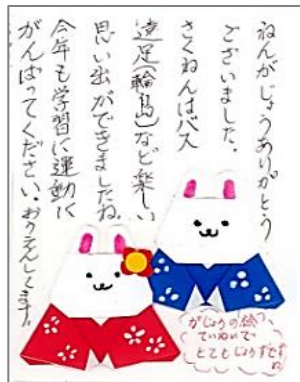 ねんがじょうありがとう
ございました。
さくねんはバス
遠足(輪島)など楽しい
思い出ができましたね。
今年も学習に運動に
がんばってください。おうえんしてます。
がじょうの絵、
ていねいで
とてもじょうずです
ね